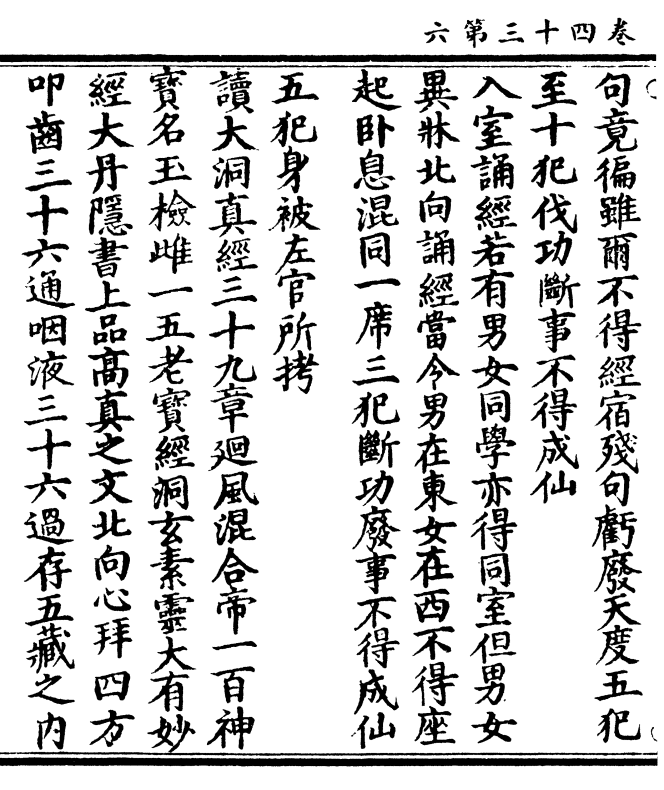 卷四十三第六
句竟徧雖爾不得經宿殘句虧廢天度五犯
至十犯伐功斷事不得成仙
入室誦經若有男女同學亦得同室但男女
異牀北向誦經當令男在東女在西不得座
起卧息混同一席三犯斷功廢事不得成仙
五犯身被左官所拷
讀大洞真經三十九章廻風混合帝一百神
寶名玉檢雌一五老寶經洞玄素靈大有妙
經大丹隱書上品高真之文北向心拜四方
叩齒三十六通咽液三十六過存五藏之內